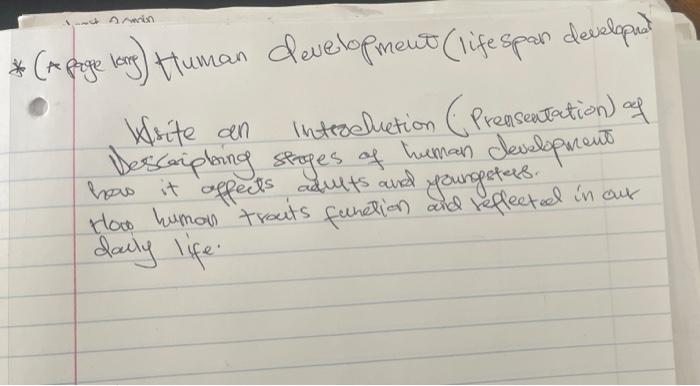 2 min
* (A page long) Human development (lifespan development
Write an Introduction (Prensentation) of
Descripbing stages of human development
how it affects adults and youngsters.
How human traits function and reflected in our
daily life.